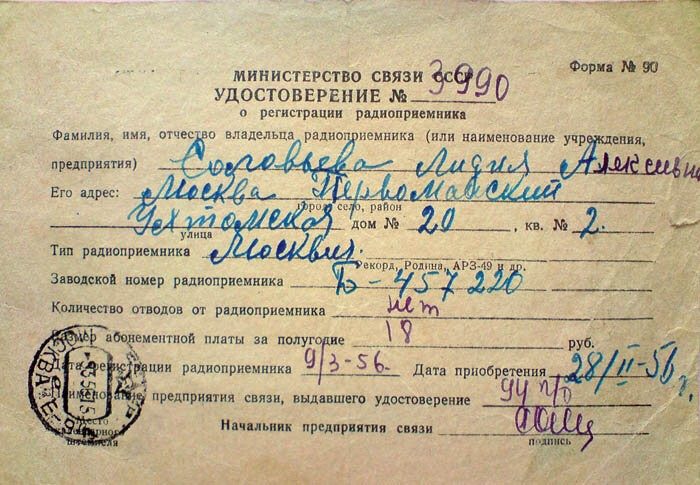 Форма № 90
МИНИСТЕРСТВО СВЯЗИ СССР
УДОСТОВЕРЕНИЕ № 3990
о регистрации радиоприемника
Фамилия, имя, отчество владельца радиоприемника (или наименование учреждения,
предприятия) Соловьева Лидия Алексеевна
Его адрес: Москва Первомайский
город, село, район
Ухтомская дом № 20, кв. № 2.
улица
Тип радиоприемника Москвич
Рекорд, Родина, АРЗ-49 и др.
Заводской номер радиоприемника Б-457220
Количество отводов от радиоприемника нет
Размер абонементной платы за полугодие 18 руб.
Дата регистрации радиоприемника 9/3-56. Дата приобретения 28/II-56 г
Наименование предприятия связи, выдавшего удостоверение 94 п/о
Место
календарного
штемпеля
МОСКВА
Начальник предприятия связи
подпись